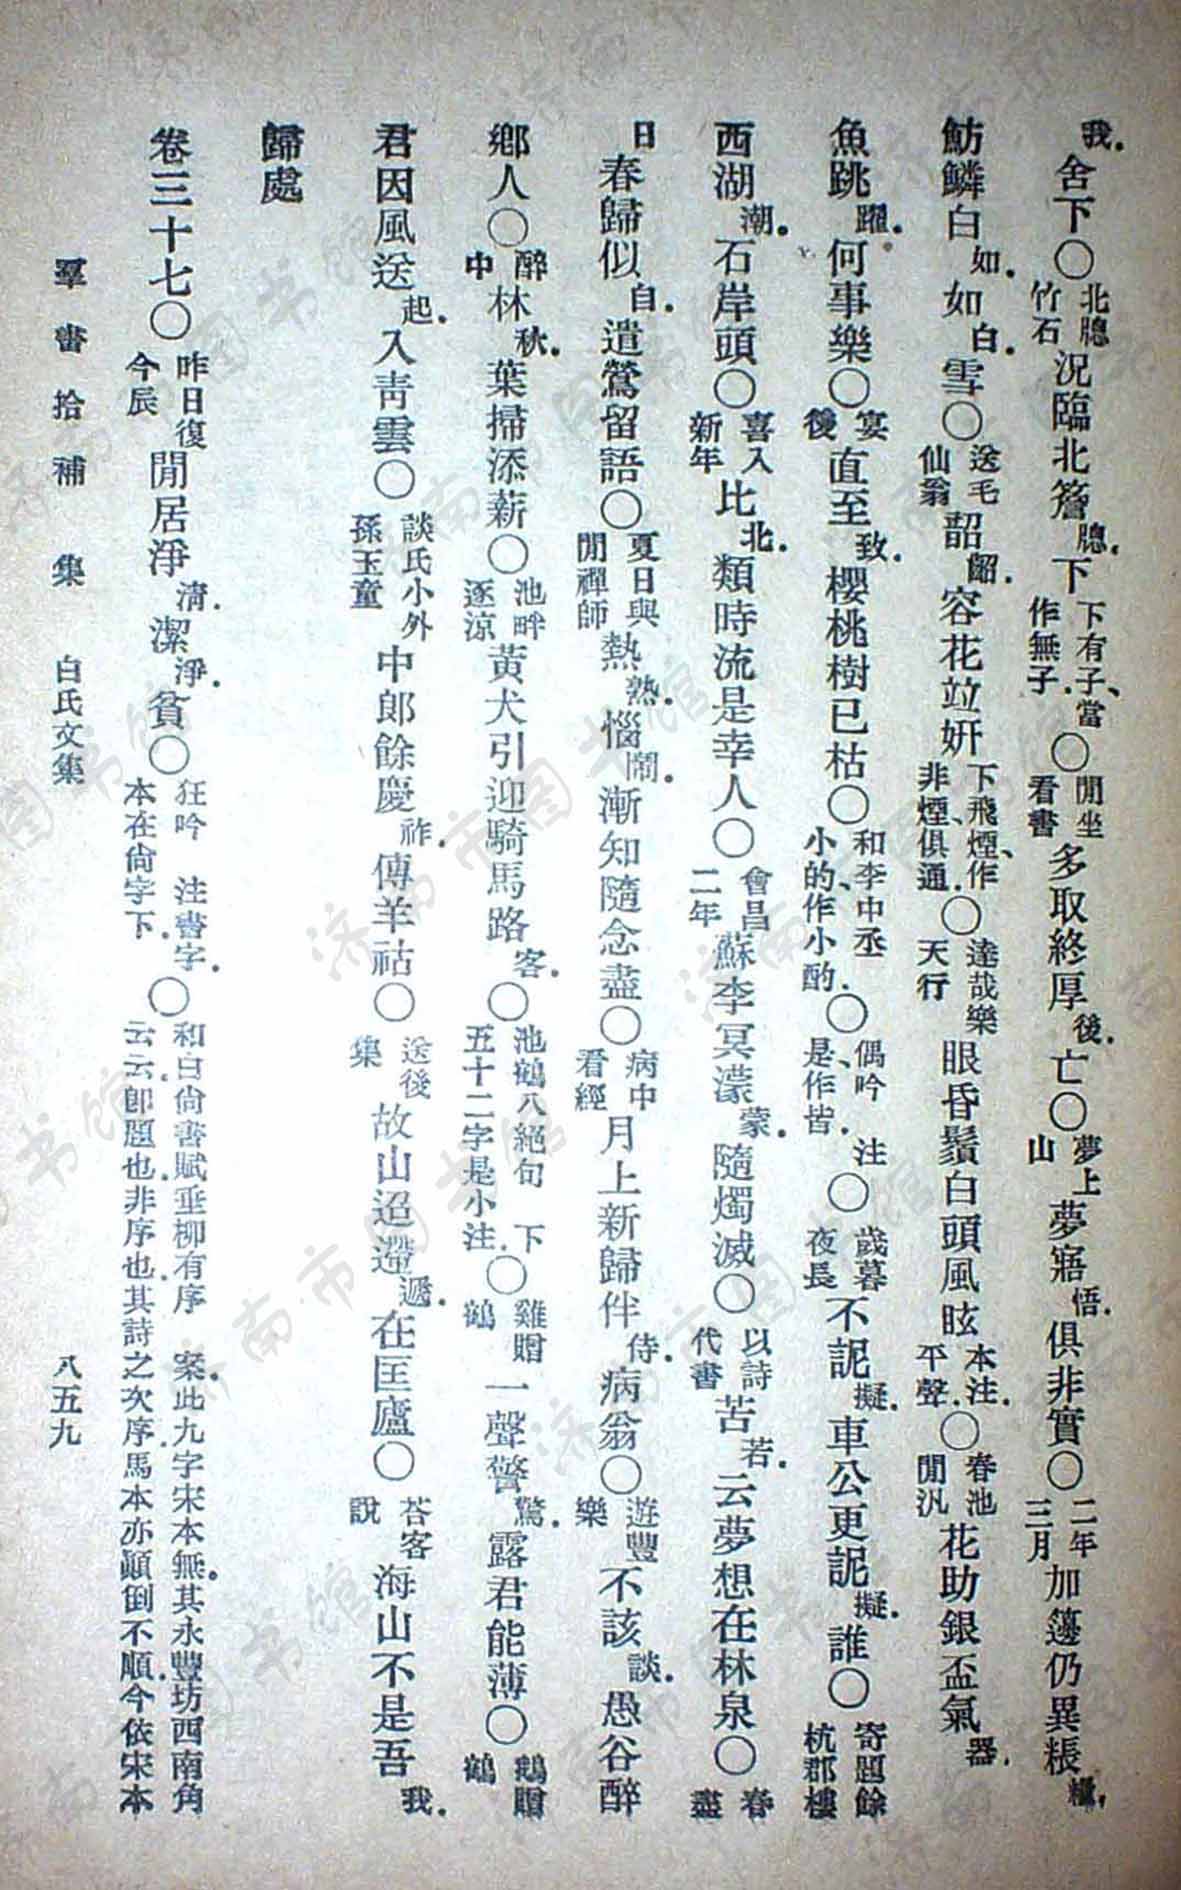 我舍下○北牕竹石況臨北簷牕下下有子當作無子○閒坐看書多取終厚後亡○夢上山夢寤悟俱非實○二年三月加籩仍異粻糧
魴鱗白如如白雪○送毛仙翁韶齠容花竝妍下飛煙作非煙俱通○達哉樂天行眼昏鬚白頭風眩本注平聲○春池閒汎花助銀盃氣器
魚跳躍何事樂○宴後直至致櫻桃樹已枯○和李中丞小的作小酌○偶吟注是作皆○歲暮夜長不誢擬車公更誢擬誰○寄題餘杭郡樓
西湖潮石岸頭○喜入新年比北類時流是幸人○會昌二年蘇李冥濛蒙隨燭滅○以詩代書苦若云夢想在林泉○春盡
日春歸似自遣鶯留語○夏日與閒禪師熱熟惱鬧漸知隨念盡○病中看經月上新歸伴侍病翁○遊豐樂不該談愚谷醉
鄉人○醉中林秋葉掃添薪○池畔逐涼黃犬引迎騎馬路客○池鶴八絕句下五十二字是小注○雞贈鶴一聲警驚露君能薄○鵝贈鶴
君因風送起入靑雲○談氏小外孫玉童中郎餘慶祚傳羊祜○送後集故山迢遰遞在匡廬○荅客說海山不是吾我
歸處
卷三十七○昨日復今辰閒居淨清潔淨貧○狂吟注書字本在尙字下○和白尙書賦垂柳有序案此九字宋本無其永豐坊西南角云云卽題也非序也其詩之次序馬本亦顚倒不順今依宋本
羣書拾補集白氏文集八五九
济南市图书馆